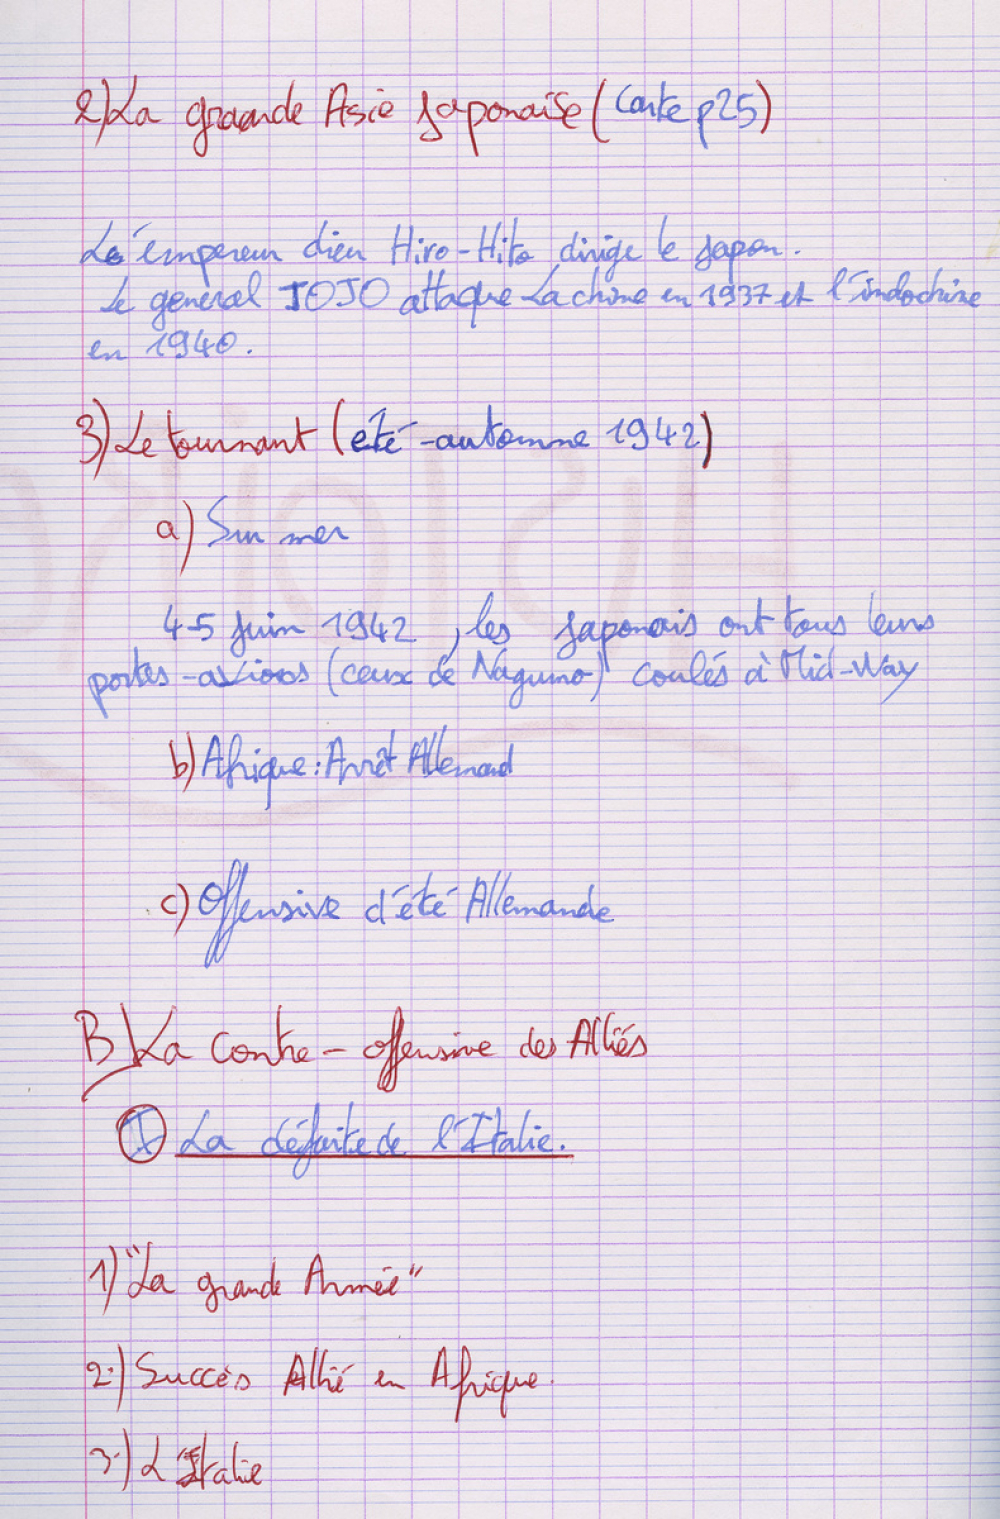 2) La grande Asie Japonaise (carte p25)
Le empereur dieu Hiro-Hito dirige le Japon.
Le général TOJO attaque La chine en 1937 et l'indochine
en 1940.
3) Le tournant (été-automne 1942)
a) Sur mer
4-5 Juin 1942, les Japonais ont tous leurs
portes-avions (ceux de Nagumo) coulés à Mid-Way
b) Afrique : Arrêt Allemand
c) Offensive d'été Allemande
B) La Contre-offensive des Alliés
I La défaite de l'Italie.
1) "La grande Armée"
2.) Succès Allié en Afrique.
3.) L'Italie
HISTOIRE